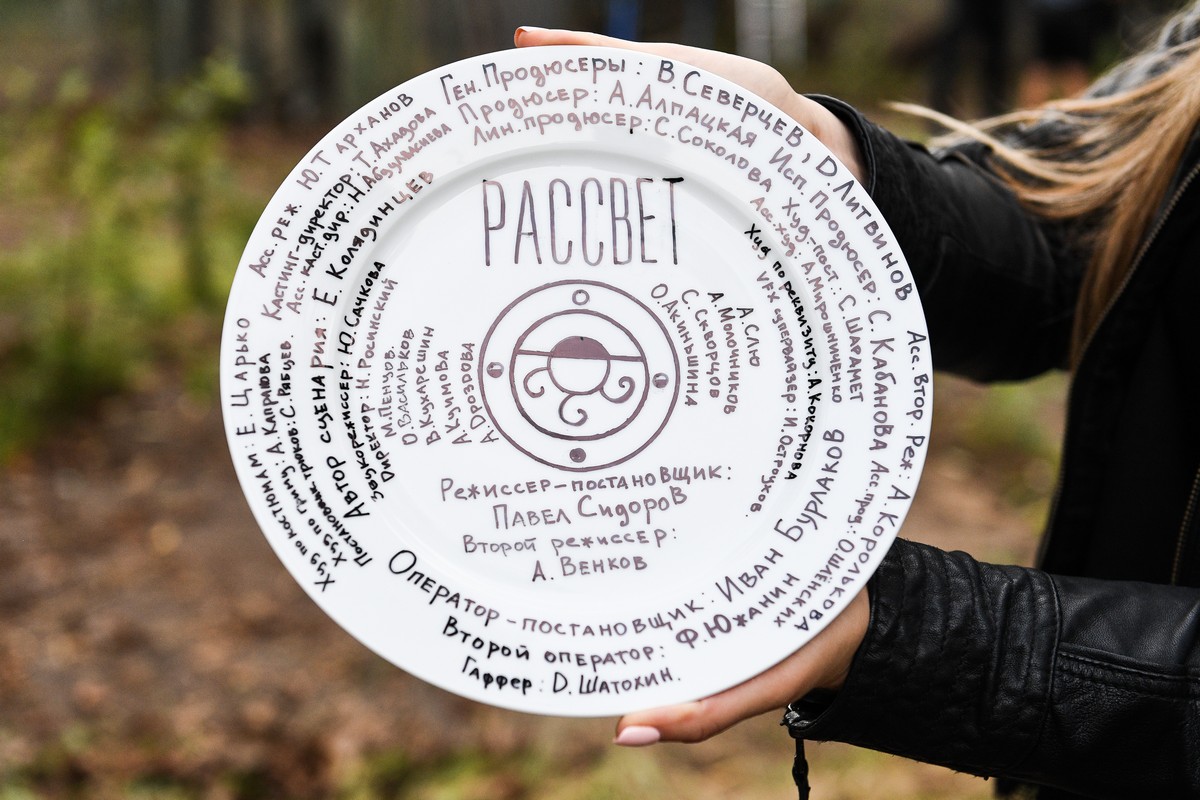 Ген. Продюсеры: В Северцев, D Литвинов
Продюсер: А. Алпацкая Исп. Продюсер: С. Кабанова
Лин. продюсер: С. Соколова Худ-пост.: С. Шарамет
Асс. худ: А. Мирошниченко
Худ по реквизиту: А. Кокорнова
VFX супервайзер: И Остроухов.
Асс. Втор. реж: А. Королькова
Асс. прод: О. Шлёнских
Асс. реж. Ю. Тарханов
Кастинг-директор: Т. Ахадова
Асс. каст. дир: Н. Абдульжиева
Автор сценария: Е. Колядинцев
Звукорежиссер: Ю. Сачкова
Директор: Н. Росинский
Худ по костюмам: Е. Царько
Худ по гриму: А. Капранова
Постановщик трюков: С. Рябцев.
РАССВЕТ
М. Пенцов.
О. Васильков
В. Кухарешин
А. Кузимова
А. Дроздова
А. Слю
А. Молочников
С. Скворцов
О. Акиньшина
Режиссер-постановщик:
Павел Сидоров
Второй режиссер:
А. Венков
Оператор-постановщик: Иван Бурлаков
Второй оператор: Ф. Южанин
Гаффер: D. Шатохин.